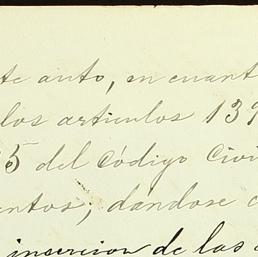 te auto, en cuant
los articulos 139
5 del Código Civi
entos; dandose
insercion de las